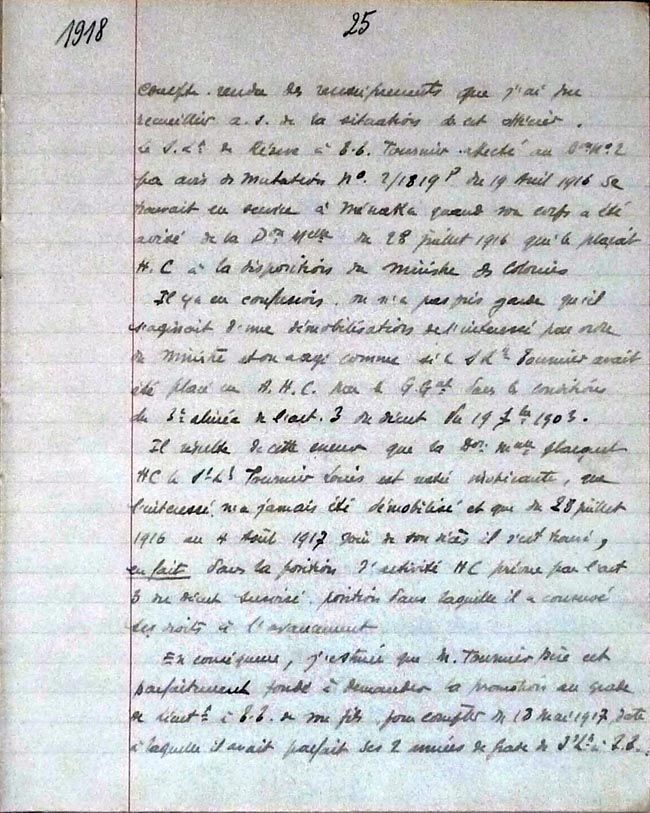 1918
25
Compte-rendu des renseignements que j'ai pu
recueillir a.s. de la situation de cet officier.
Le S.Lt de Réserve à T.T. Tournier affecté au Bon No 2
par avis de mutation No. 2/1819 P du 19 Avril 1916 se
trouvait en service à Ménaka quand son corps a été
avisé de la Don Melle du 28 juillet 1916 qui le plaçait
H.C à la disposition du Ministre des Colonies
Il y a eu confusion. On n'a pas pris garde qu'il
s'agissait d'une démobilisation de l'intéressé par ordre
du Ministre et on a agi comme si le S Lt Tournier avait
été placé en A.H.C. par le G.Gal dans les conditions
du 3e alinéa de l'art. 3 du décret du 19 7bre 1903.
Il résulte de cette erreur que la Don Melle plaçant
HC le S/Lt Tournier Louis est restée inopérante, que
l'intéressé n'a jamais été démobilisé et que du 28 juillet
1916 au 4 Août 1917 jour de son décès il s'est trouvé,
en fait dans la position d'activité HC prévue par l'art
3 du décret susvisé, position dans laquelle il a conservé
ses droits à l'avancement
En conséquence, j'estime que M. Tournier père est
parfaitement fondé à demander la promotion au grade
de Lieutt à T.T. de son fils, pour compter du 13 mai 1917, date
à laquelle il avait parfait ses 2 années de grade de S/Lt à T.T.